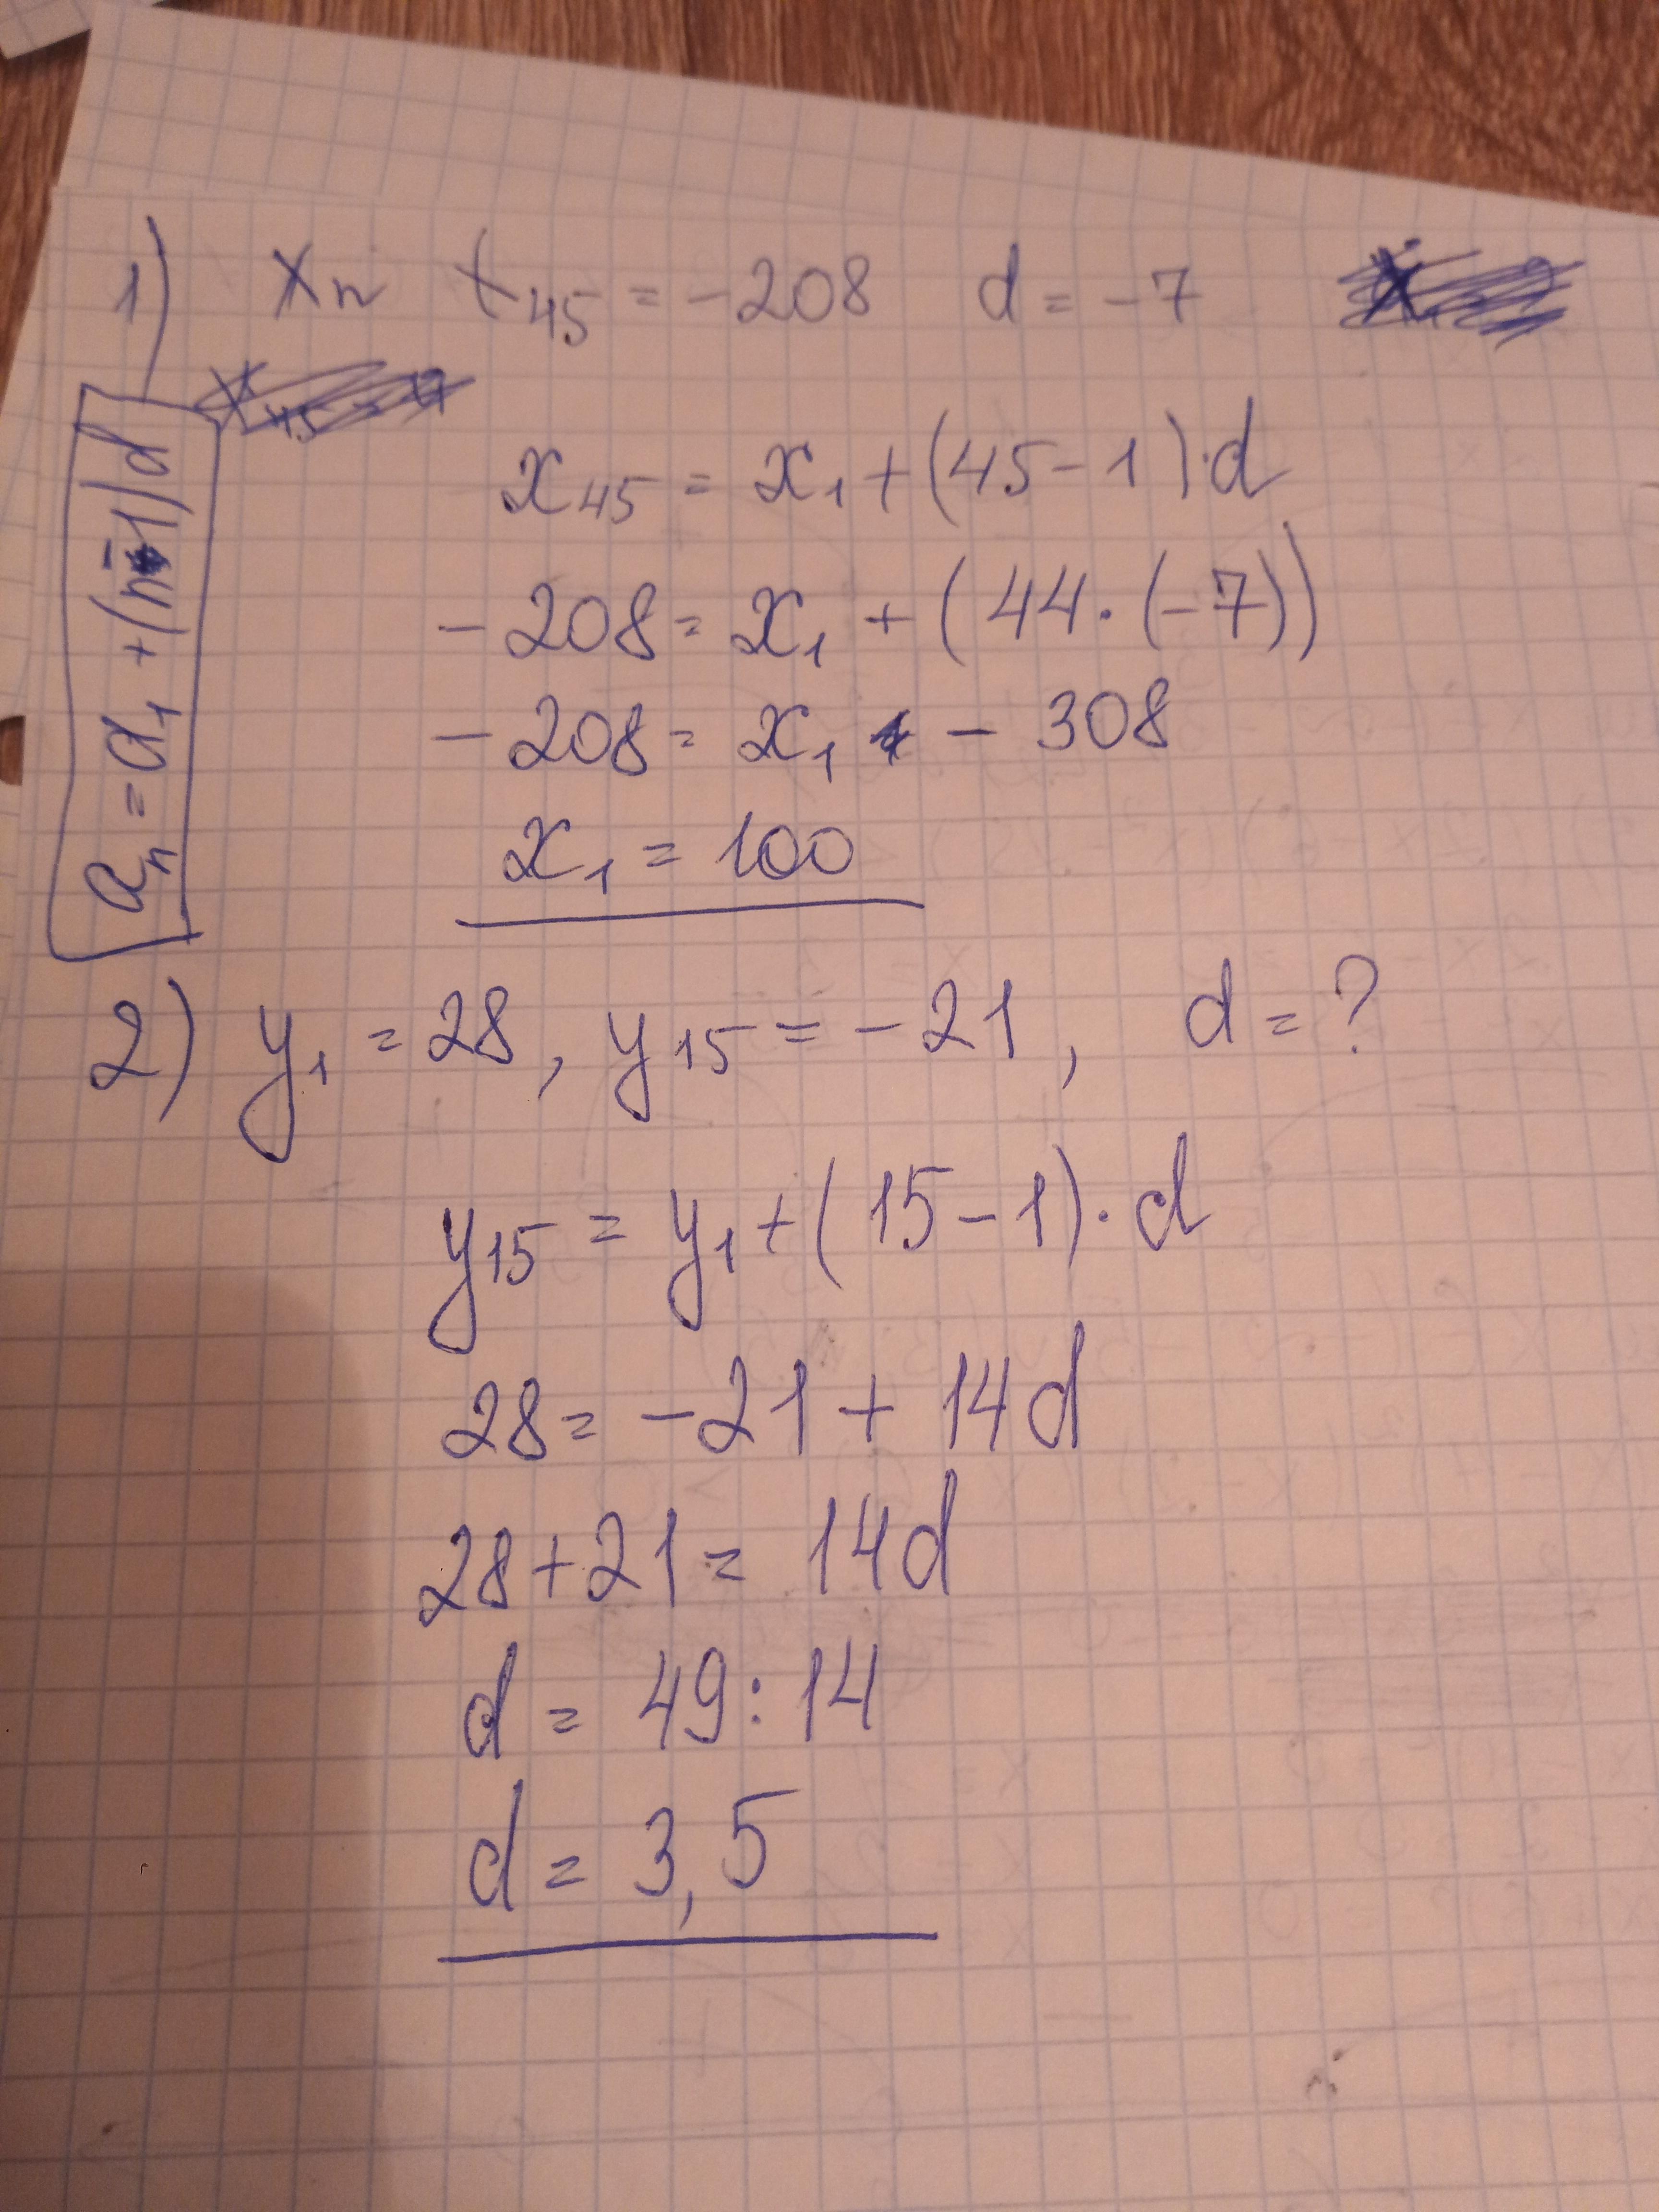 1) xn x45 = -208 d = -7
an = a1 + (n-1)d
x45 = x1 + (45-1)·d
-208 = x1 + (44·(-7))
-208 = x1 - 308
x1 = 100
2) y1 = 28, y15 = -21, d = ?
y15 = y1 + (15-1)·d
28 = -21 + 14d
28+21 = 14d
d = 49:14
d = 3,5